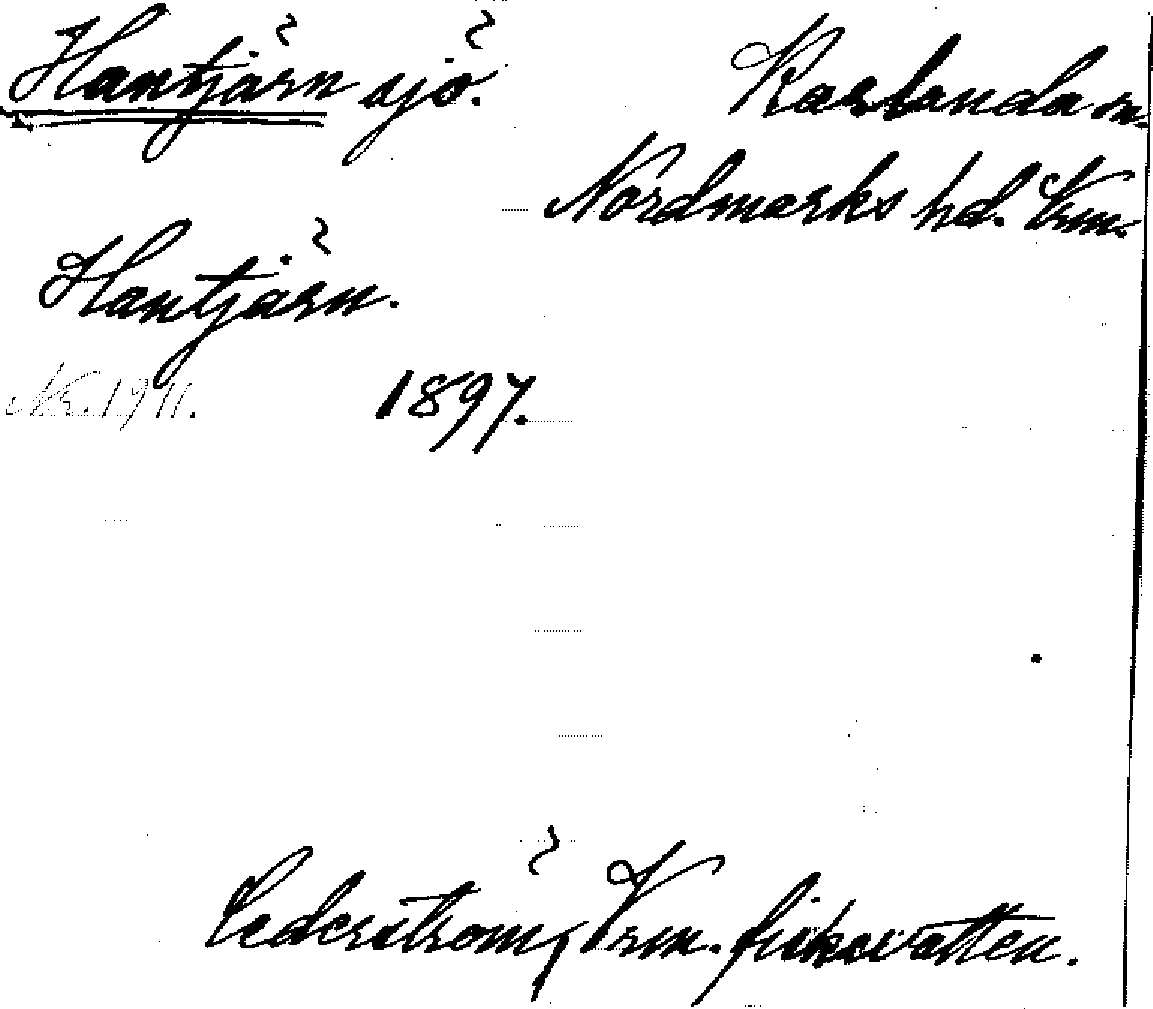 Hantjärn sjö.
Karlanda sn.
Nordmarks hd. Vrm.
Hantjärn.
Nr. 1911. 1897.
Cederström, Vrm. fiskevatten.